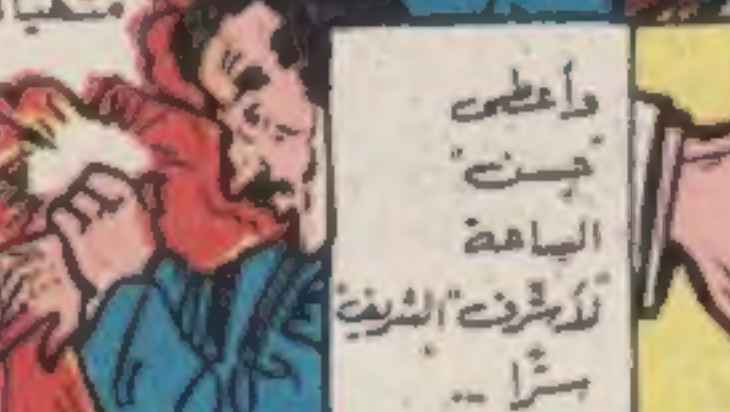 وأعطى
"حسن"
الساعة
لأشرف "الشريف"
سرًّا ..